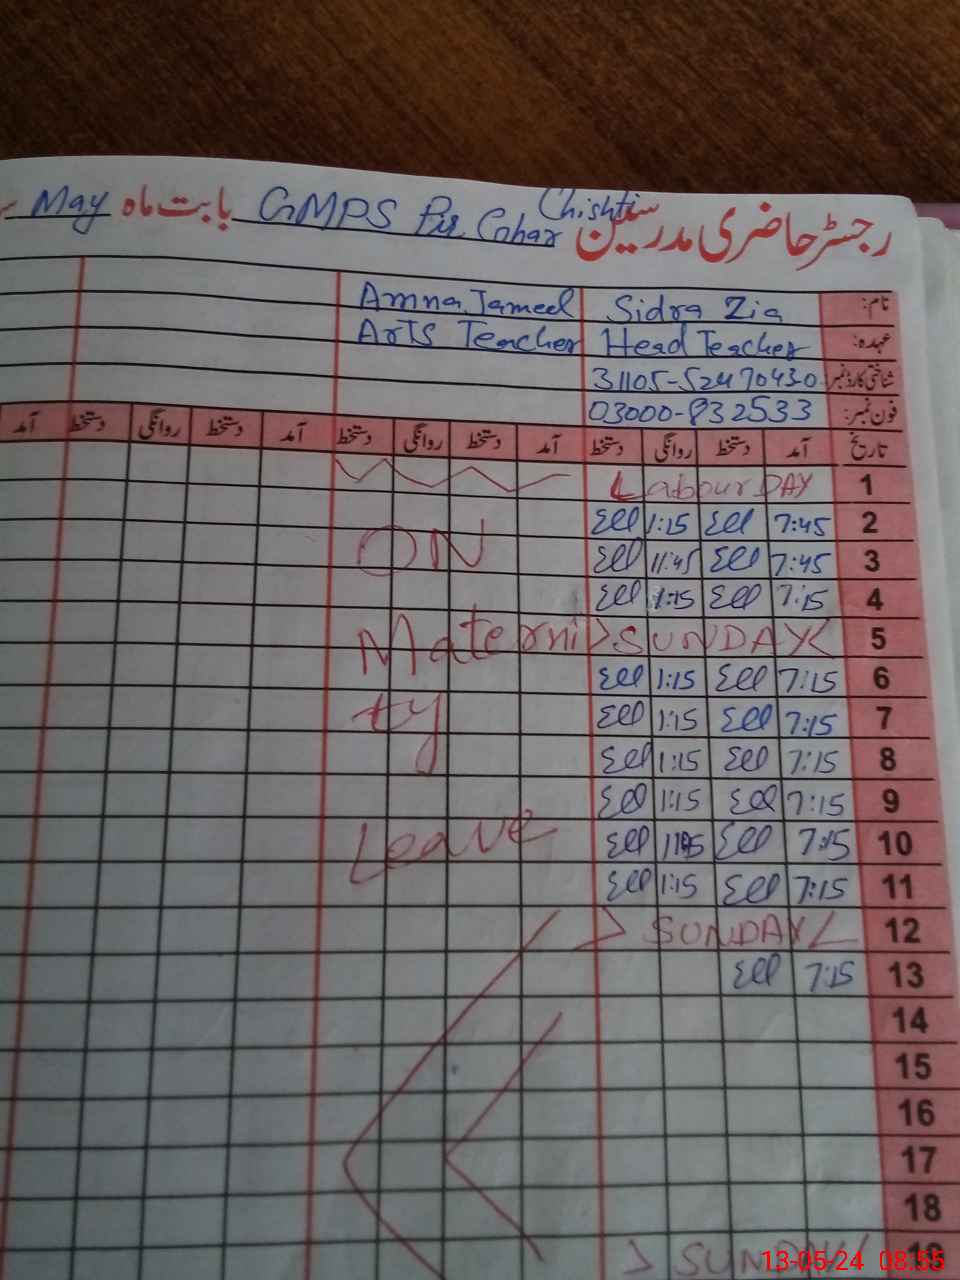 رجسٹر حاضری مدرسین GMPS Pir Gohar Chishti بابت ماہ May
نام: Sidra Zia Amna Jameel
عہدہ: Head Teacher Arts Teacher
شناختی کارڈ نمبر 31105-5247043-0
فون نمبر: 03000-832533
تاریخ آمد دستخط روانگی دستخط آمد دستخط روانگی دستخط آمد دستخط روانگی دستخط آمد
1 Labour DAY
2 7:45 1:15
3 7:45 11:45
4 7:15 1:15
5 SUNDAY
6 7:15 1:15
7 7:15 1:15
8 7:15 1:15
9 7:15 1:15
10 7:15
11 7:15 1:15
12 SUNDAY
13 7:15
14
15
16
17
18
19 SUNDAY
ON
Materni
ty
Leave
13-05-24 08:55